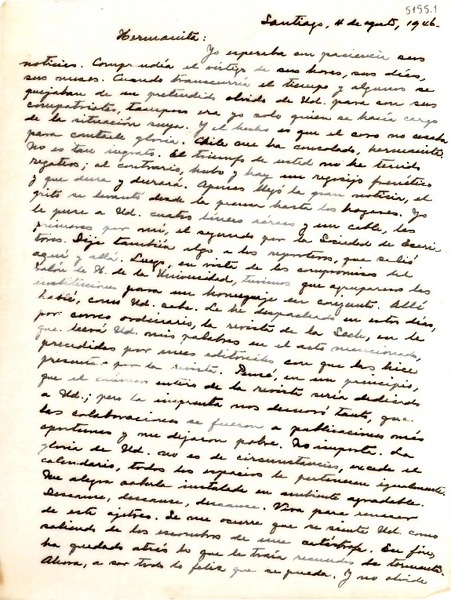 5155.1
Santiago, 4 de agosto, 1946.
Hermanita:
Yo esperaba con paciencia sus
noticias. Comprendía el vértigo de sus horas, sus días,
sus meses. Cuando transcurría el tiempo y algunos se
quejaban de un pretendido olvido de Ud. para con sus
compatriotas, tampoco era yo solo quien se hacía cargo
de la situación suya. Y el hecho es que el coro no cesaba
para cantarle gloria. Chile que ha consolado, hermanita.
No es tan ingrato. El triunfo de usted no ha tenido
negativos; al contrario, hubo y hay un regocijo frenético
y que dura y durará. Apenas llegó la gran noticia, el
grito se levantó desde la prensa hasta los hogares. Yo
le puse a Ud. cuatro líneas aéreas y un cable, las
primeras por mí, el segundo por la Sociedad de Escri-
tores. Dije también algo a los reporteros, que salió
aquí y allá. Luego, en vista de los compromisos del
Salón de H. de la Universidad, tuvimos que agruparnos las
instituciones para un homenaje en conjunto. Allá
hablé, como Ud. sabe. Le he despachado en estos días,
por correo ordinario, la revista de la Sech, en la
que leerá Ud. mis palabras en el acto mencionado,
precedidas por unas editoriales con que las hice
presente por la revista. Pensé, en un principio,
que el número entero de la revista sería dedicado
a Ud.; pero la imprenta nos demoró tanto, que
las colaboraciones se fueron a publicaciones más
oportunas y me dejaron pobre. No importa. La
gloria de Ud. no es de circunstancias, excede el
calendario, todos los espacios le pertenecen igualmente.
Me alegra saberla instalada en ambiente agradable.
Descanse, descanse, descanse. Viva para reposar
de este ajetreo. Se me ocurre que se siente Ud. como
saliendo de los escombros de una catástrofe. En fin,
ha quedado atrás lo que le traía recuerdos de tormento.
Ahora, a ser todo lo feliz que se pueda. Y no olvide